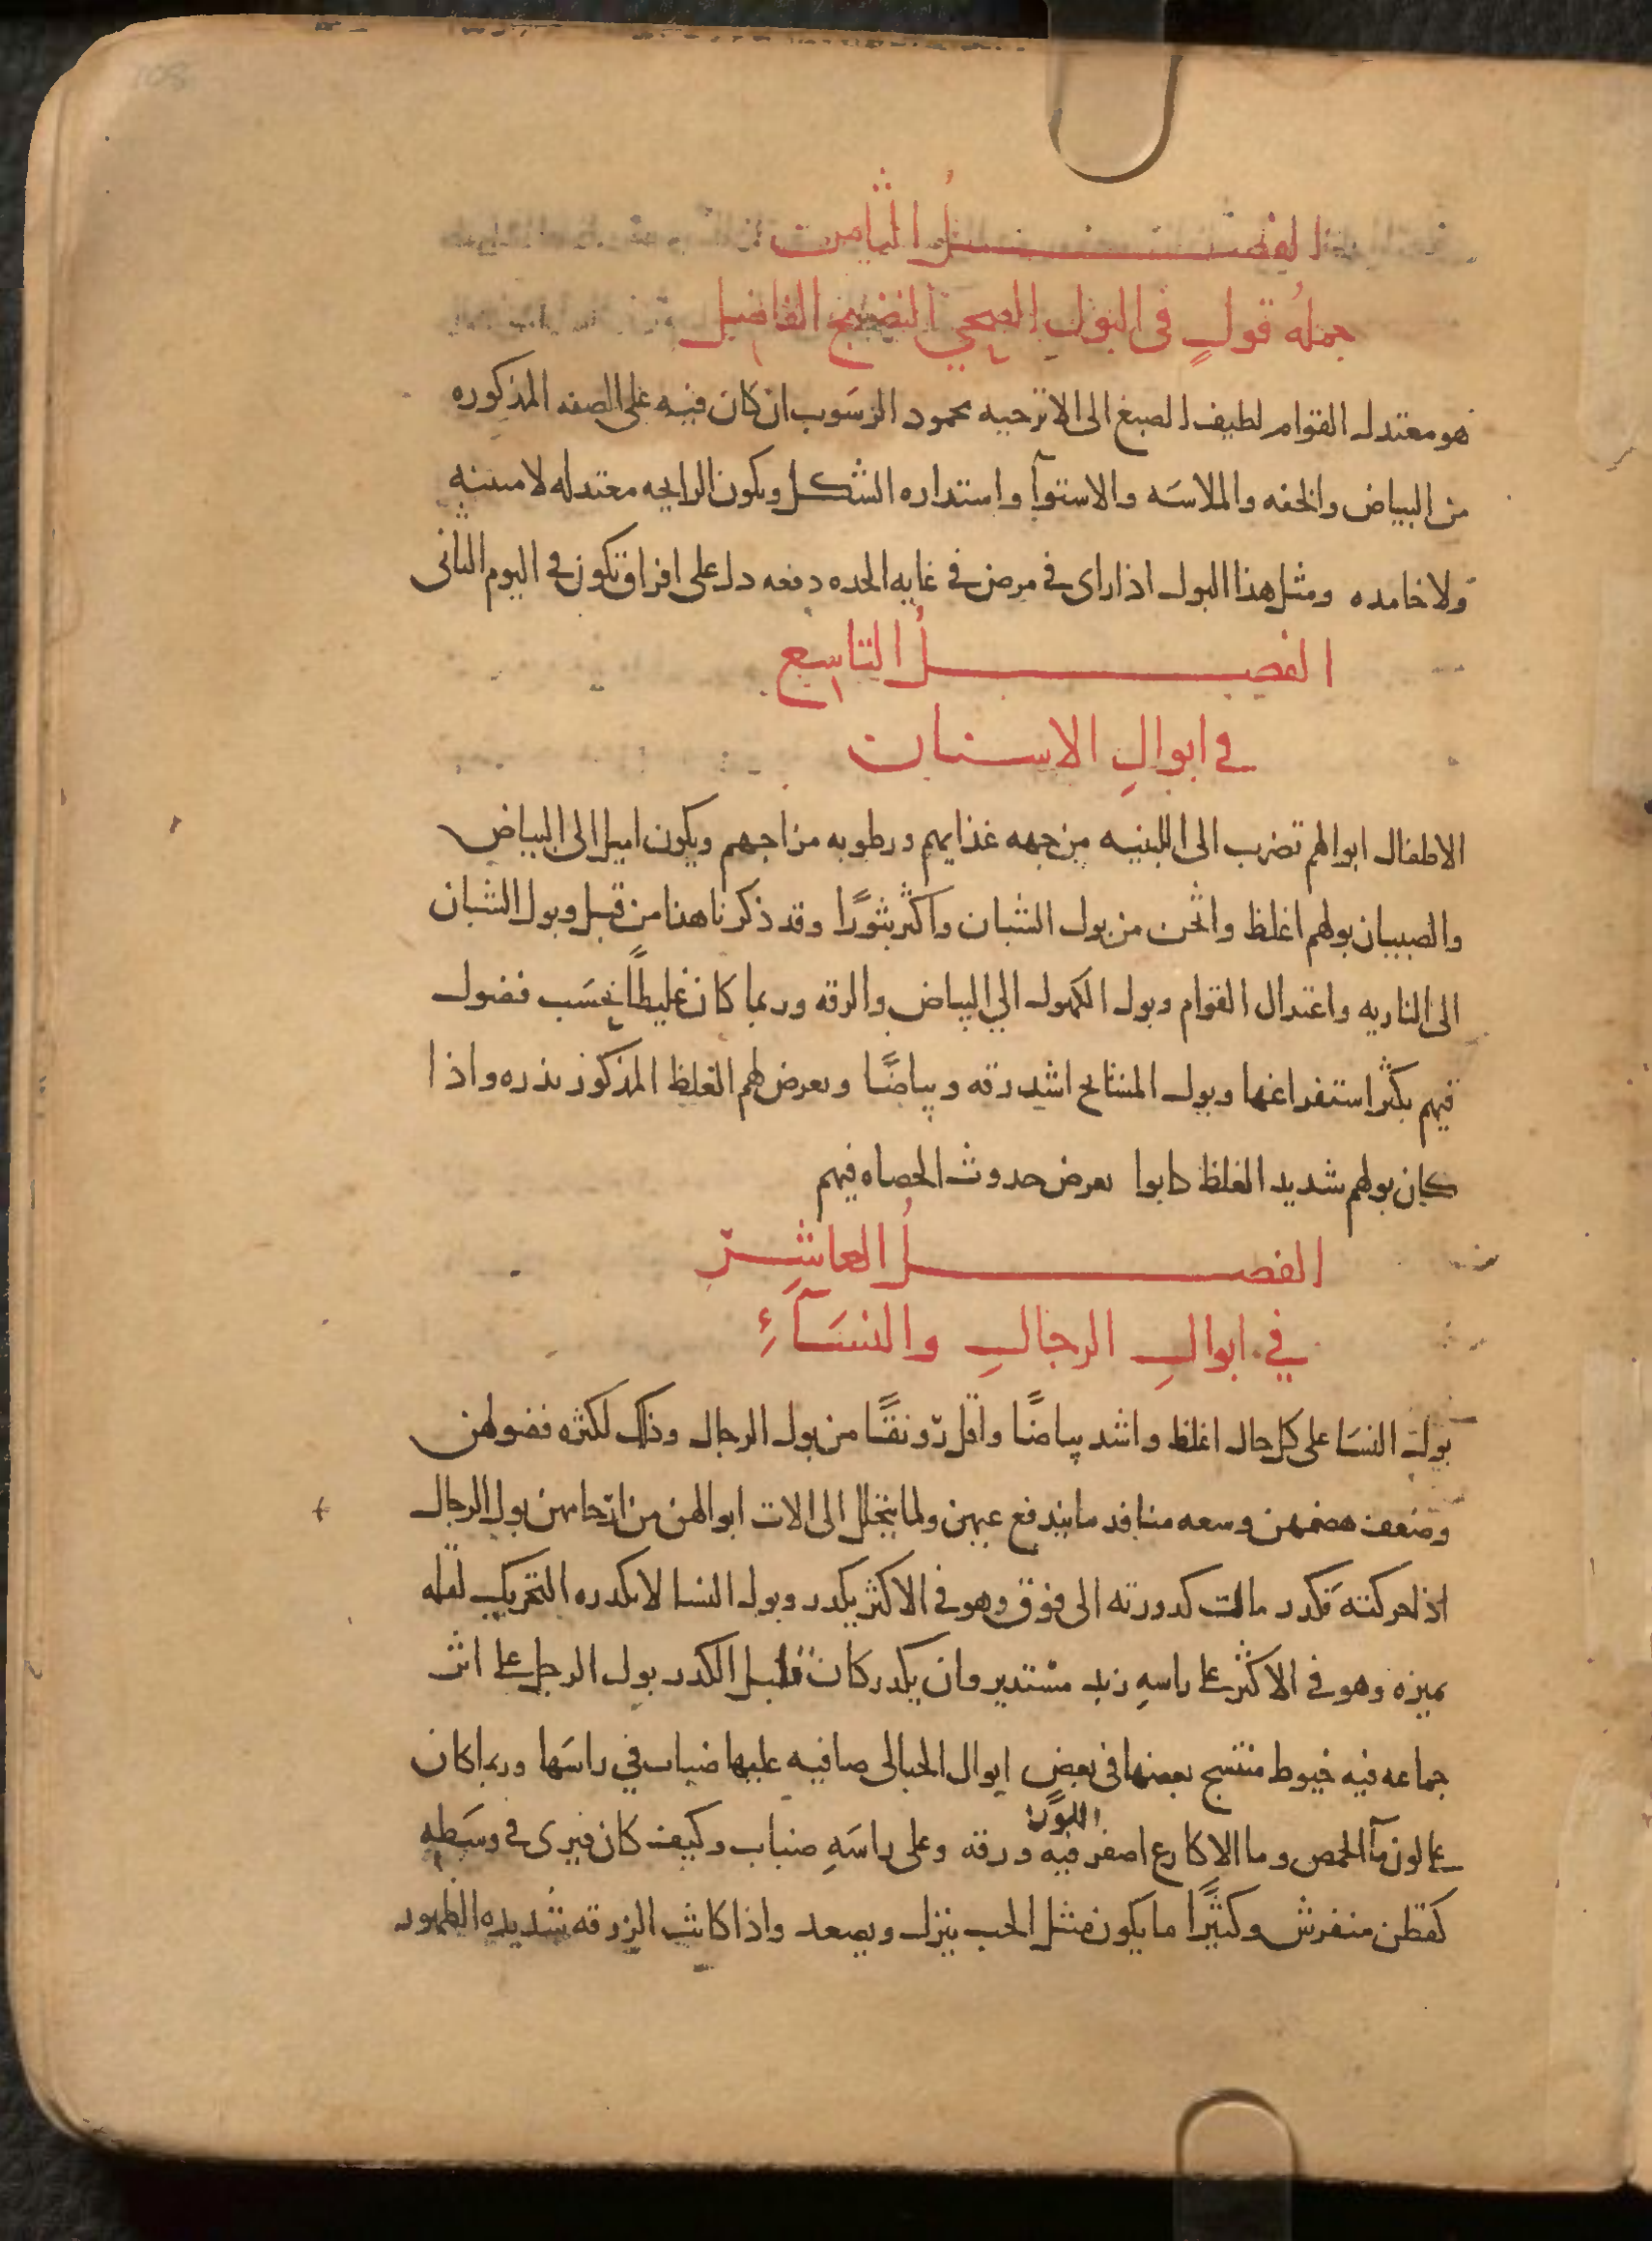 الفصل الثامن
جملهُ قولٍ فى البولِ الصحي النضيج الفاضِل
هو معتدل القوام لطيف الصبغ الى الاترجيه محمود الرسوب ان كان فيه على الصفه المذكوره
من البياض والخفه والملاسَه والاستوآ واستداره الشكل ويكون الرايحه معتدله لا منتنه
ولا خامده ومثل هذا البول اذا راى فى مرض فى غايه الحده دفعه دل على افراق تكون فى اليوم الثانى
الفصلُ التاسِع
فى ابوالِ الاسنان
الاطفال ابوالهم تضرب الى اللبنيه من جهه غذايهم ورطوبه مزاجهم ويكون اميل الى البياض
والصبيان بولهم اغلظ واثخن من بول الشبان واكثر بثورًا وقد ذكرنا هذا من قبل وبول الشبان
الى الناريه واعتدال القوام وبول الكهول الي البياض والرقه وربما كان غليظًا بحسَب فضول
فيهم يكثر استفراغها وبول المشايخ اشد رقه وبياضًا ويعرض لهم الغلظ المذكور بندره واذا
كان بولهم شديد الغلظ كانوا بعرض حدوث الحصاه فيهم
الفصلُ العاشِر
في ابوالِ الرجالِ والنسَآءِ
بول النسَا على كل حال اغلظ واشد بياضًا واقل رونقًا من بول الرجال وذلك لكثره فضولهن
وضعف هضمهن وسعه منافد ما يندفع عنهن ولما يتحلل الى الات ابوالهن من ارحامهن بول الرجال
اذا حركته فكدر مالت كدورته الى فوق وهو فى الاكثر يكدر وبول النسا لا يكدره التحريك لقله
تميزه وهو فى الاكثر على راسهِ زبد مستدير وان يكدر كان قليل الكدر بول الرجل على اثر
جماعه فيه خيوط منتسج بعضها فى بعض ابوال الحبالى صافيه عليها ضباب في راسَها وربما كان
على لون مآ الحمص وما الاكارع اصفر فيه ورقه وعلى راسَهِ ضباب وكيف كان فيرى فى وسَطهِ
كقطن منفوش وكثيرًا ما يكون مثل الحب ينزل ويصعد واذا كانت الزرقه شديده الظهور